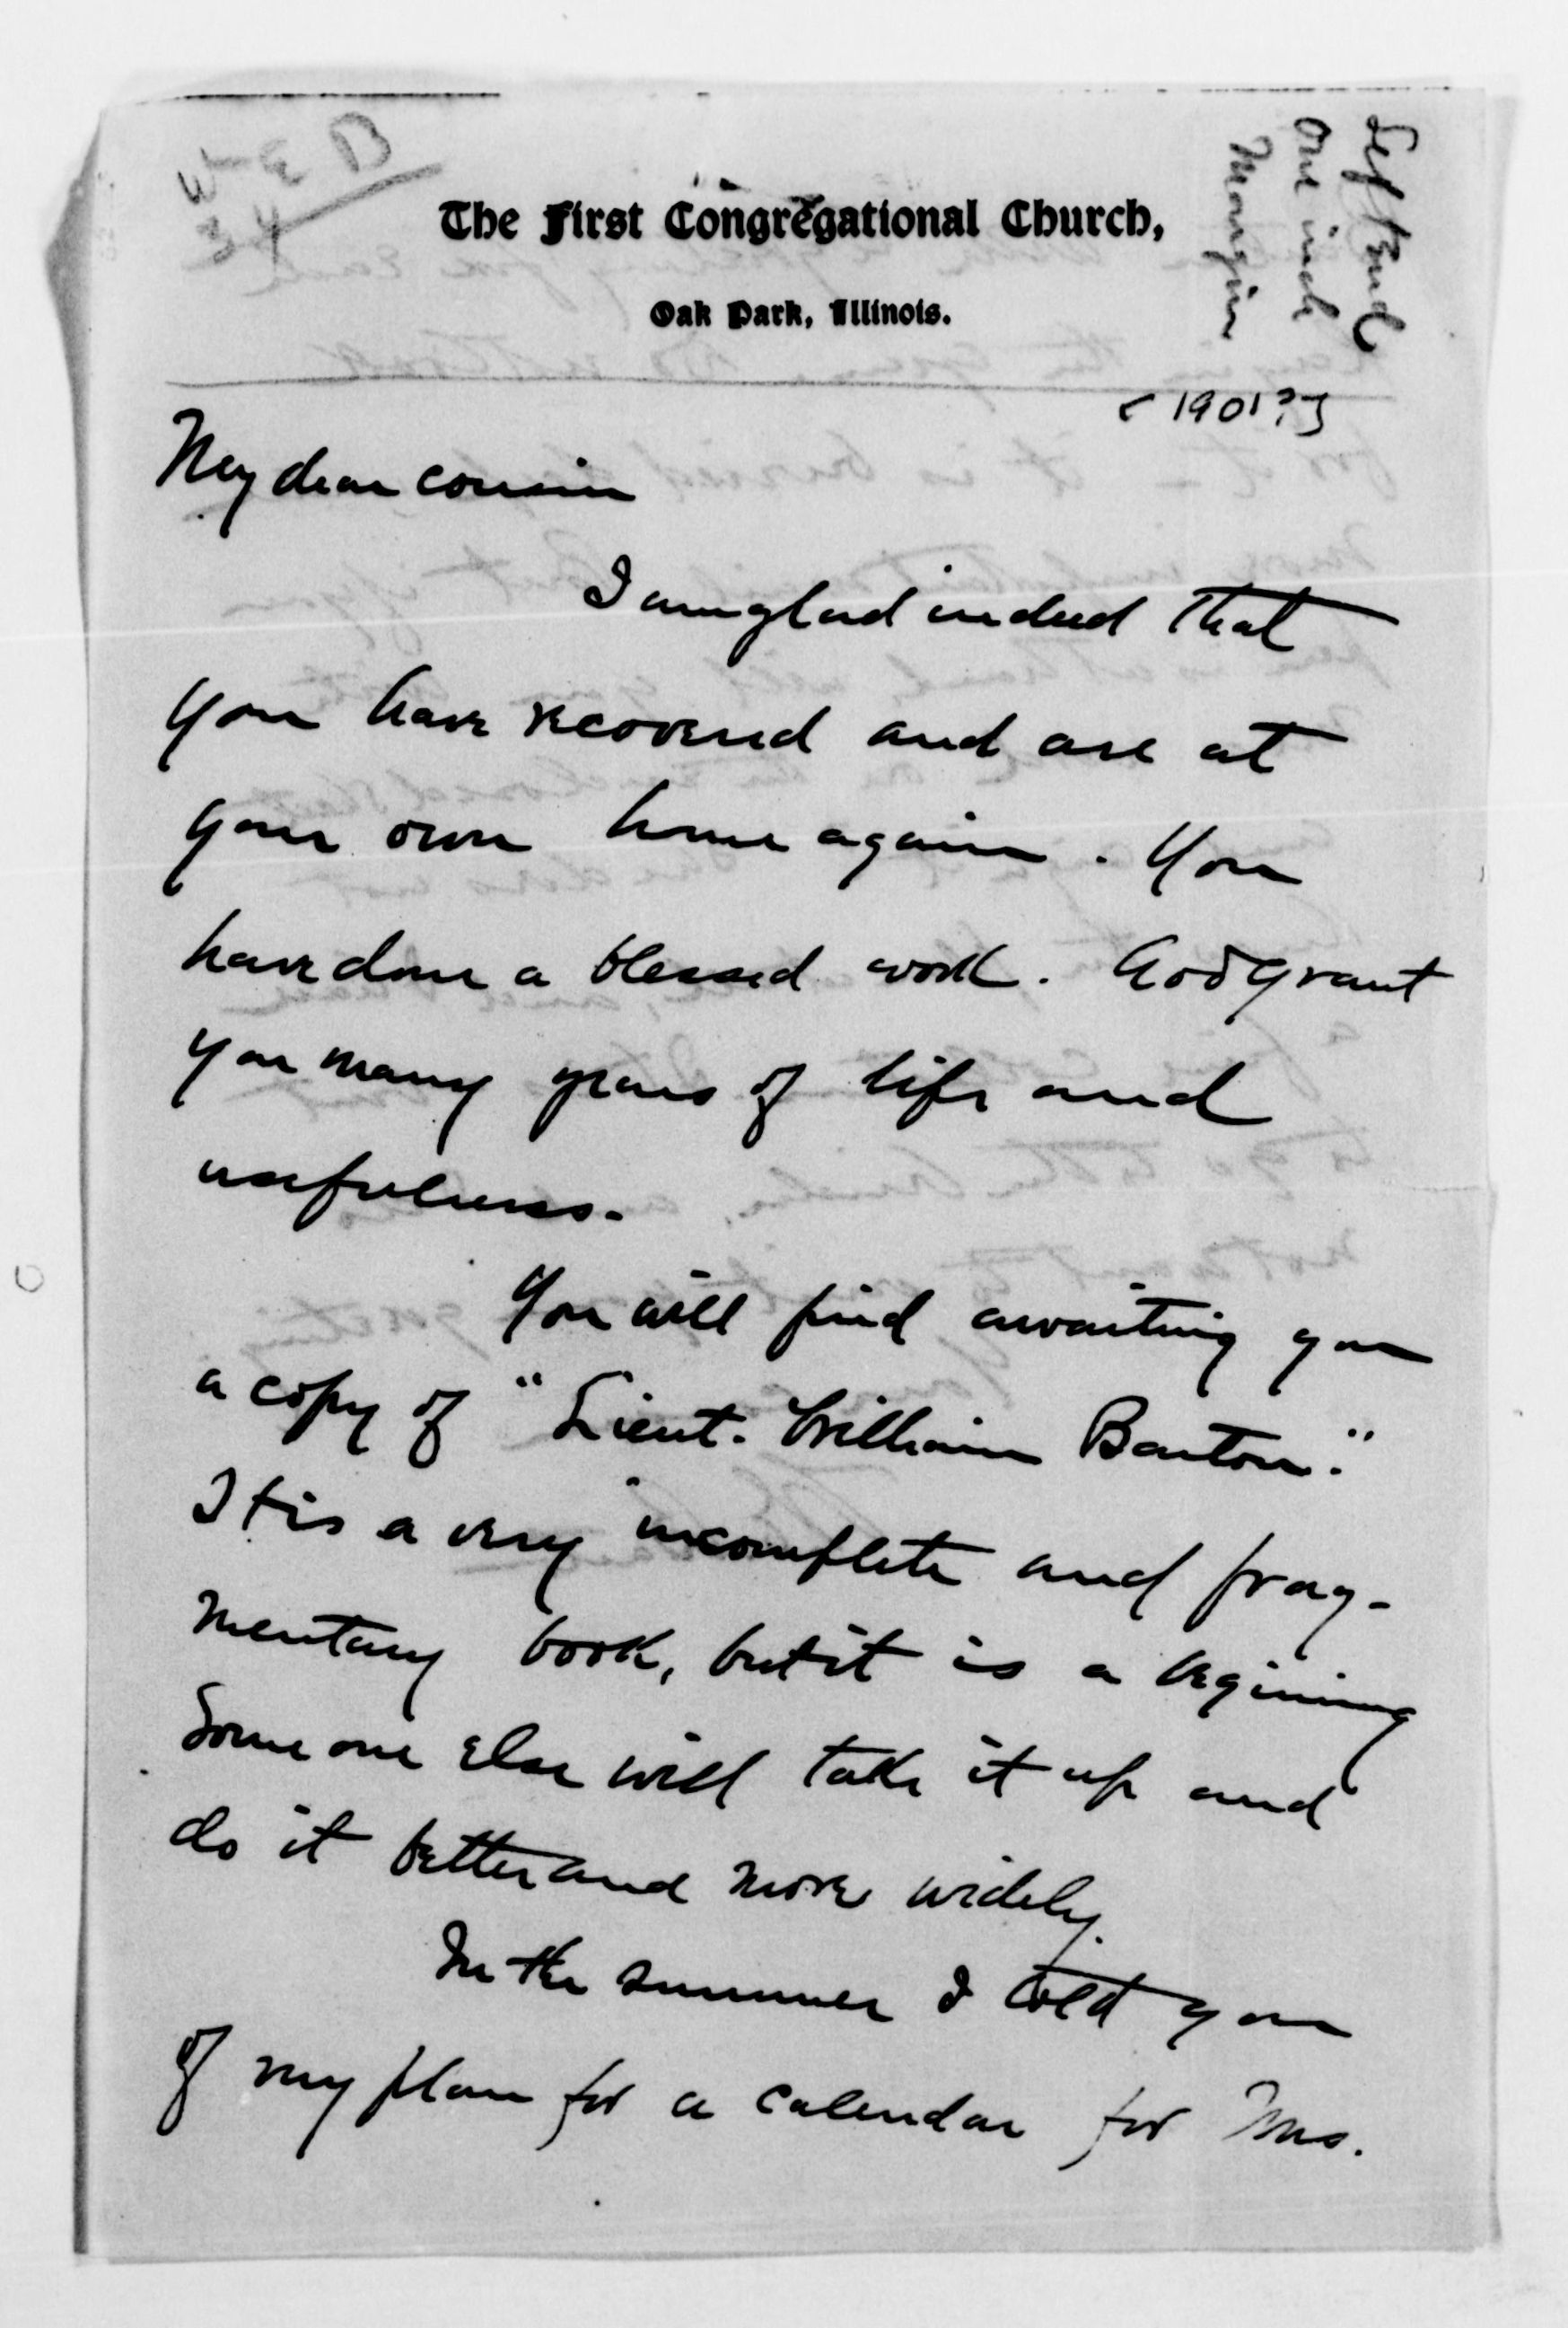 The First Congregational Church,
Oak Park, Illinois.
Left end
one inch
Margin
[1901?]
My dear cousin
I am glad indeed that
you have recovered and are at
your own home again. You
have done a blessed work. God grant
you many years of life and
usefulness.
You will find awaiting you
a copy of "Lieut. William Barton."
It is a very incomplete and frag-
mentary book, but it is a begining
Some one else will take it up and
do it better and more widely.
In the summer I told you
of my plan for a calendar for Mrs.